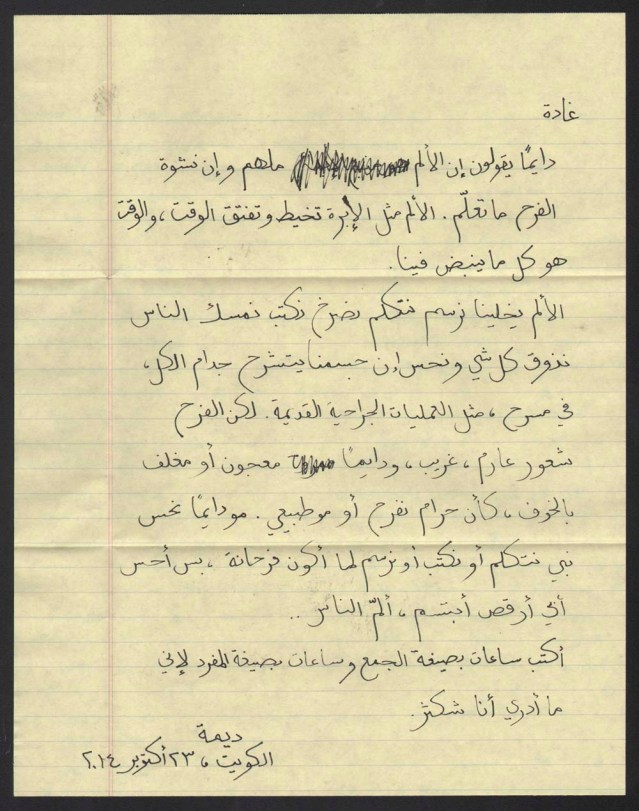 غادة
دايمًا يقولون إن الألم ملهم وإن نشوة
الفرح ما تعلّم. الألم مثل الإبرة تخيط وتفتق الوقت، والوقت
هو كل ما ينبض فينا.
الألم يخلينا نرسم نتكلم نصرخ نكتب نمسك الناس
نذوق كل شي ونحس إن جسمنا يتشرح جدام الكل،
في مسرح، مثل العمليات الجراحية القديمة. لكن الفرح
شعور عارم، غريب، ودايمًا معجون أو مغلف
بالخوف، كأن حرام نفرح أو مو طبيعي. مو دايمًا نحس
نبي نتكلم أو نكتب أو نرسم لما أكون فرحانة، بس أحس
أبي أرقص أبتسم، ألمّ الناس..
أكتب ساعات بصيغة الجمع وساعات بصيغة المفرد لإني
ما أدري أنا شكثر.
ديمة
الكويت، ٢٣ أكتوبر ٢٠١٤